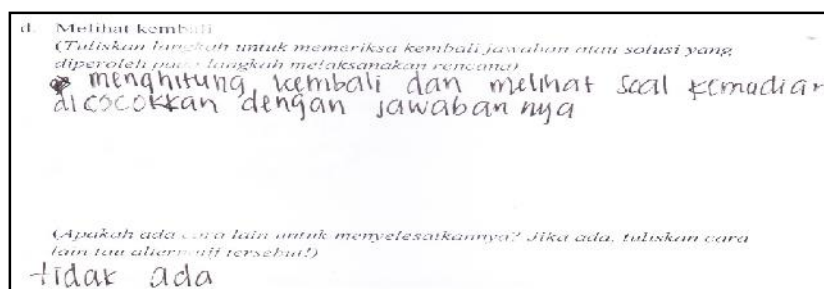 d. Melihat kembali
(Tuliskan langkah untuk memeriksa kembali jawaban atau solusi yang
diperoleh pada langkah melaksanakan rencana)
menghitung kembali dan melihat soal kemudian
dicocokkan dengan jawaban nya
(Apakah ada cara lain untuk menyelesaikannya? Jika ada, tuliskan cara
lain tau alternatif tersebut!)
tidak ada